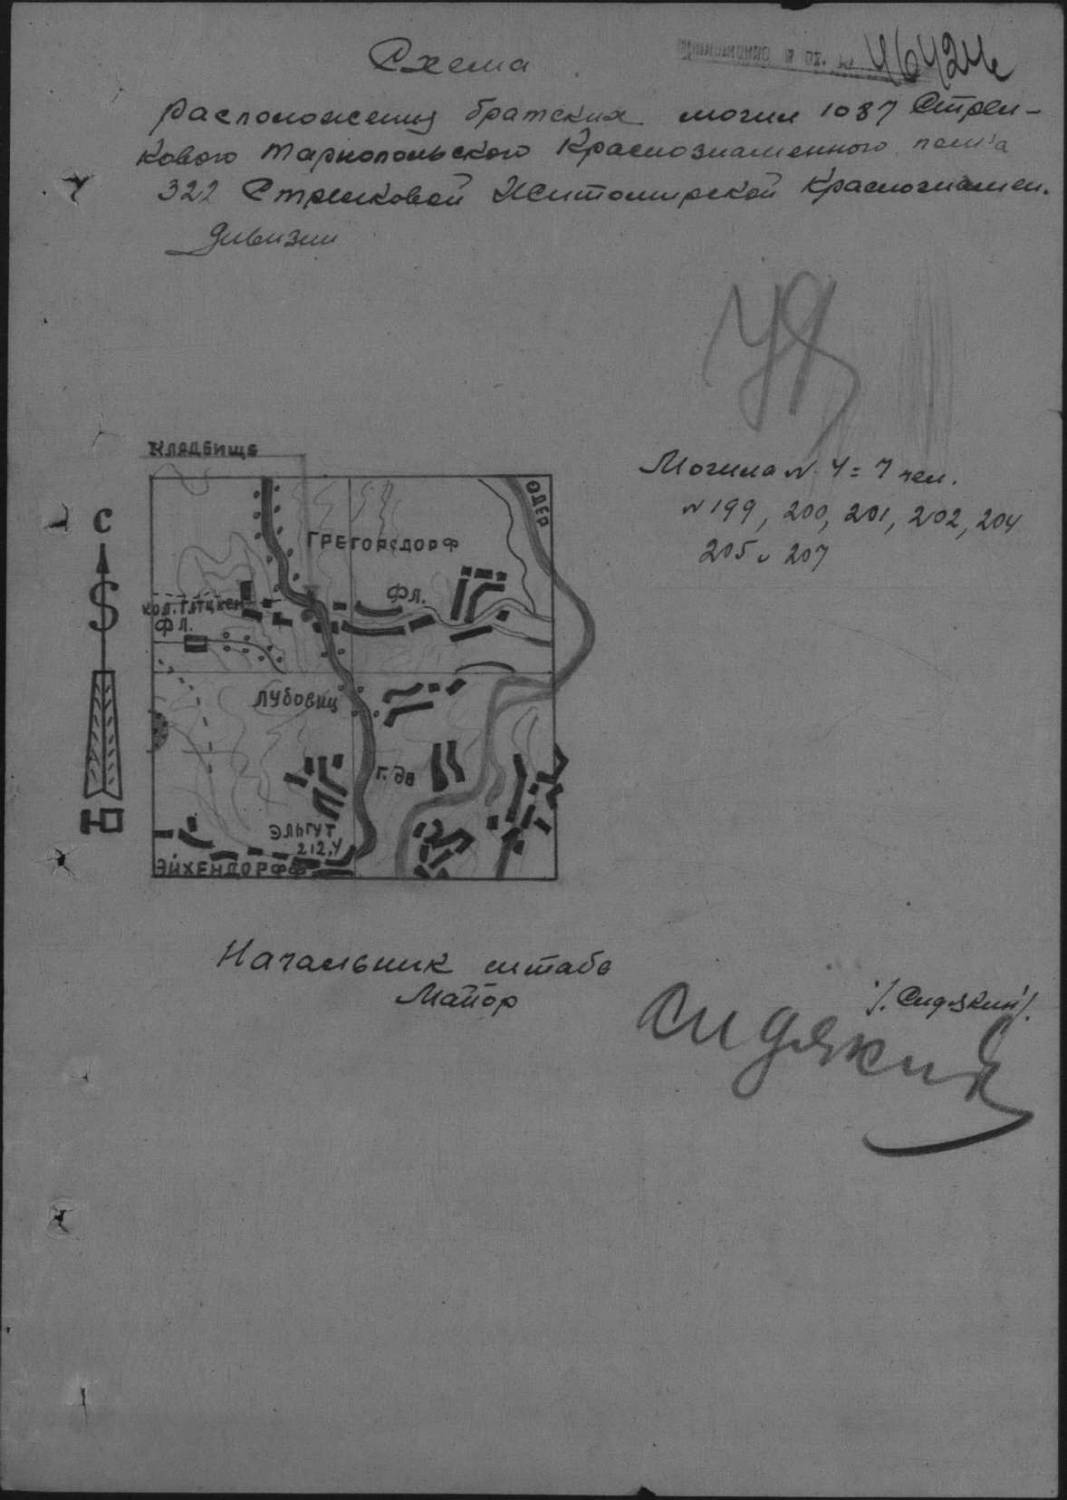 Схема
46424с
расположения братских могил 1087 Стрел-
кового Тарнопольского Краснознаменного полка
322 Стрелковой Житомирской Краснознамен.
дивизии
Кладбище
Могила № 4 = 7 чел.
№ 199, 200, 201, 202, 204
205 и 207
С
Ю
ОДЕР
ГРЕГОРСДОРФ
ФЛ.
КОЛ.
ФЛ.
ЛУБОВИЦ
Г. ДВ
ЭЛЬГУТ
212,4
ЭЙХЕНДОРФФ
Начальник штаба
Майор
/. Сидякин /.
Сидякин